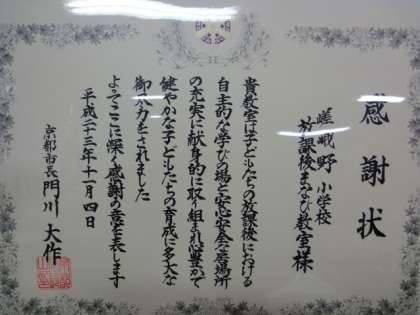 感謝状
嵯峨野小学校
放課後まなび教室様
貴教室は子どもたちの放課後における
自主的な学びの場と安心安全な居場所
の充実に献身的に取り組まれ心豊かで
健やかな子どもたちの育成に多大な
御尽力をされました
よってここに深く感謝の意を表します
平成二十三年十一月四日
京都市長 門川大作